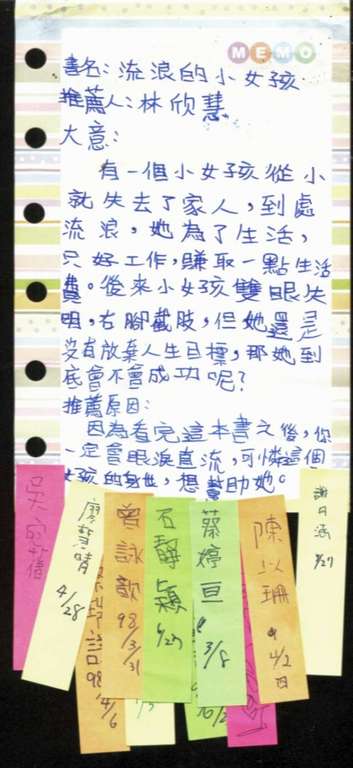 MEMO
書名:流浪的小女孩
推薦人:林欣慧
大意:
有一個小女孩從小
就失去了家人,到處
流浪,她為了生活,
只好工作,賺取一點生活
費。後來小女孩雙眼失
明,右腳截肢,但她還是
沒有放棄人生目標,那她到
底會不會成功呢?
推薦原因:
因為看完這本書之後,你
一定會眼淚直流,可憐這個
女孩的身世,想幫助她。
吳
廖
4/28
98
4/6
曾詠歆
98
3/31
石靜
蔡婷亘
3/8
陳以珊
4/2
四